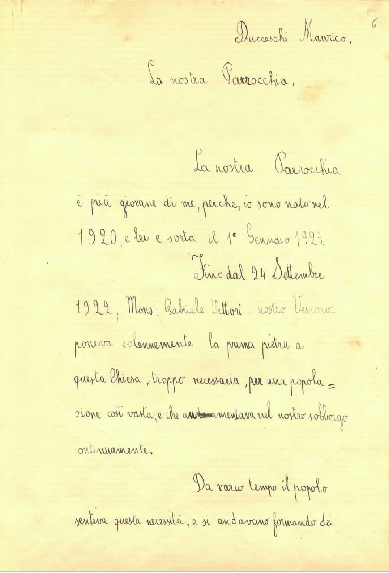 6
Ducceschi Manrico.
La nostra Parrocchia.
La nostra Parrocchia
è più giovane di me, perche, io sono nato nel
1920, e lei e sorta il 1° Gennaio 1923.
Fino dal 24 Settembre
1922, Mons. Gabriele Vettori nostro Vescovo
poneva solennemente la prima pietra a
questa Chiesa, troppo necessaria, per una popola=
zione così vasta, e che aumentava nel nostro sobborgo
continuamente.
Da vario tempo il popolo
sentiva questa necessità, e si andavano formando da